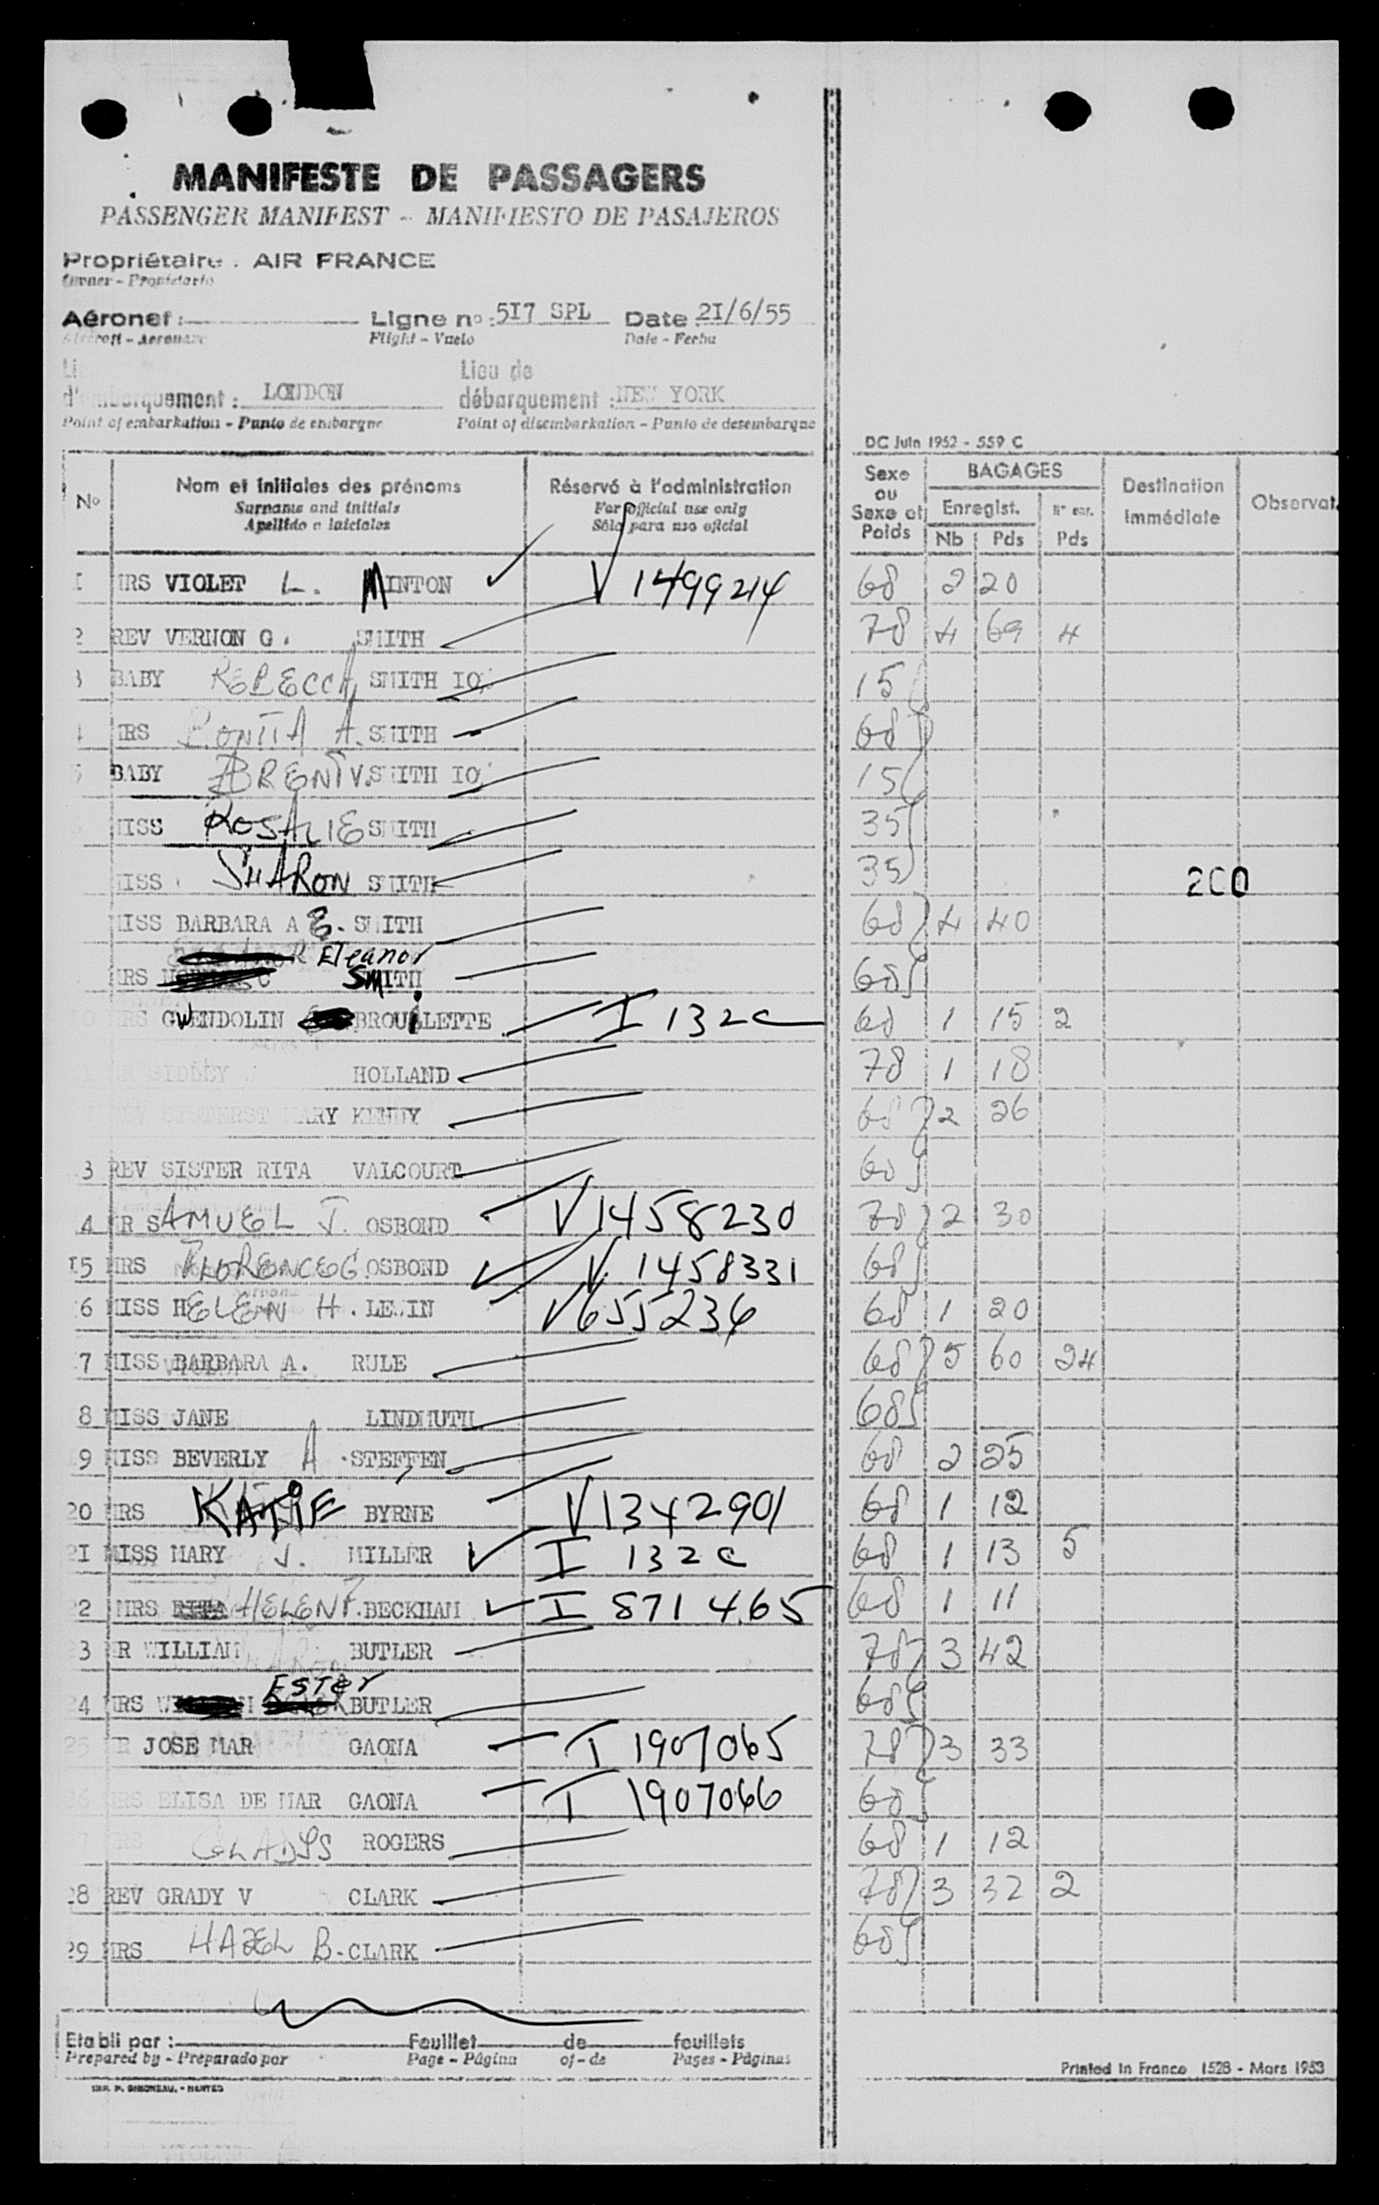 MANIFESTE DE PASSAGERS
PASSENGER MANIFEST - MANIFIESTO DE PASAJEROS
Propriétaire : AIR FRANCE
Owner - Propietario
Aéronef : Ligne no : 5I7 SPL Date 2I/6/55
Aircraft - Aeronave Flight - Vuelo Date - Fecha
Lieu de
d'embarquement : LONDON débarquement : NEW YORK
Point of embarkation - Punto de embarque Point of disembarkation - Punto de desembarque
DC Juin 1952 - 559 C
No Nom et initiales des prénoms Réservé à l'administration Sexe ou Sexe et Poids BAGAGES Destination immédiate Observat.
Surname and initials For official use only Enregist.
Apellido e iniciales Sólo para uso oficial Nb Pds Pds
I MRS VIOLET L. MINTON V 1499214 68 2 20
2 REV VERNON G. SMITH 78 4 69 4
3 BABY REBECCA SMITH IO 15
MRS A. SMITH 68
5 BABY BRENT V. SMITH IO 15
MISS ROSALIE SMITH 35
MISS SHARON SMITH 35 200
MISS BARBARA A E. SMITH 68 4 40
Eleanor
MRS SMITH 68
MRS GWENDOLIN BROUILLETTE I 132c 68 1 15 2
HOLLAND 78 1 18
MARY KENNY 68 2 26
3 REV SISTER RITA VALCOURT 68
4 MR SAMUEL J. OSBOND V1458230 78 2 30
I5 MRS FLORENCE G. OSBOND V 1458331 68
6 MISS HELEN H. LEWIN V655236 68 1 20
7 MISS BARBARA A. RULE 68 5 60 24
8 MISS JANE LINDMUTH 68
9 MISS BEVERLY A. STEFFEN 68 2 25
20 MRS KATIE BYRNE V1342901 68 1 12
2I MISS MARY J. MILLER I 132c 68 1 13 5
22 MRS HELEN F. BECKHAM I 871465 68 1 11
3 MR WILLIAM BUTLER 78 3 42
ESTEr
4 MRS BUTLER 68
25 MR JOSE MAR GAONA I 1907065 78 3 33
6 MRS ELISA DE MAR GAONA I 1907066 68
7 MRS GLADYS ROGERS 68 1 12
28 REV GRADY V CLARK 78 3 32 2
29 MRS HAZEL B. CLARK 68
Etabli par : Feuillet de feuillets
Prepared by - Preparado por Page - Página of - de Pages - Páginas
Printed in France 1528 - Mars 1953